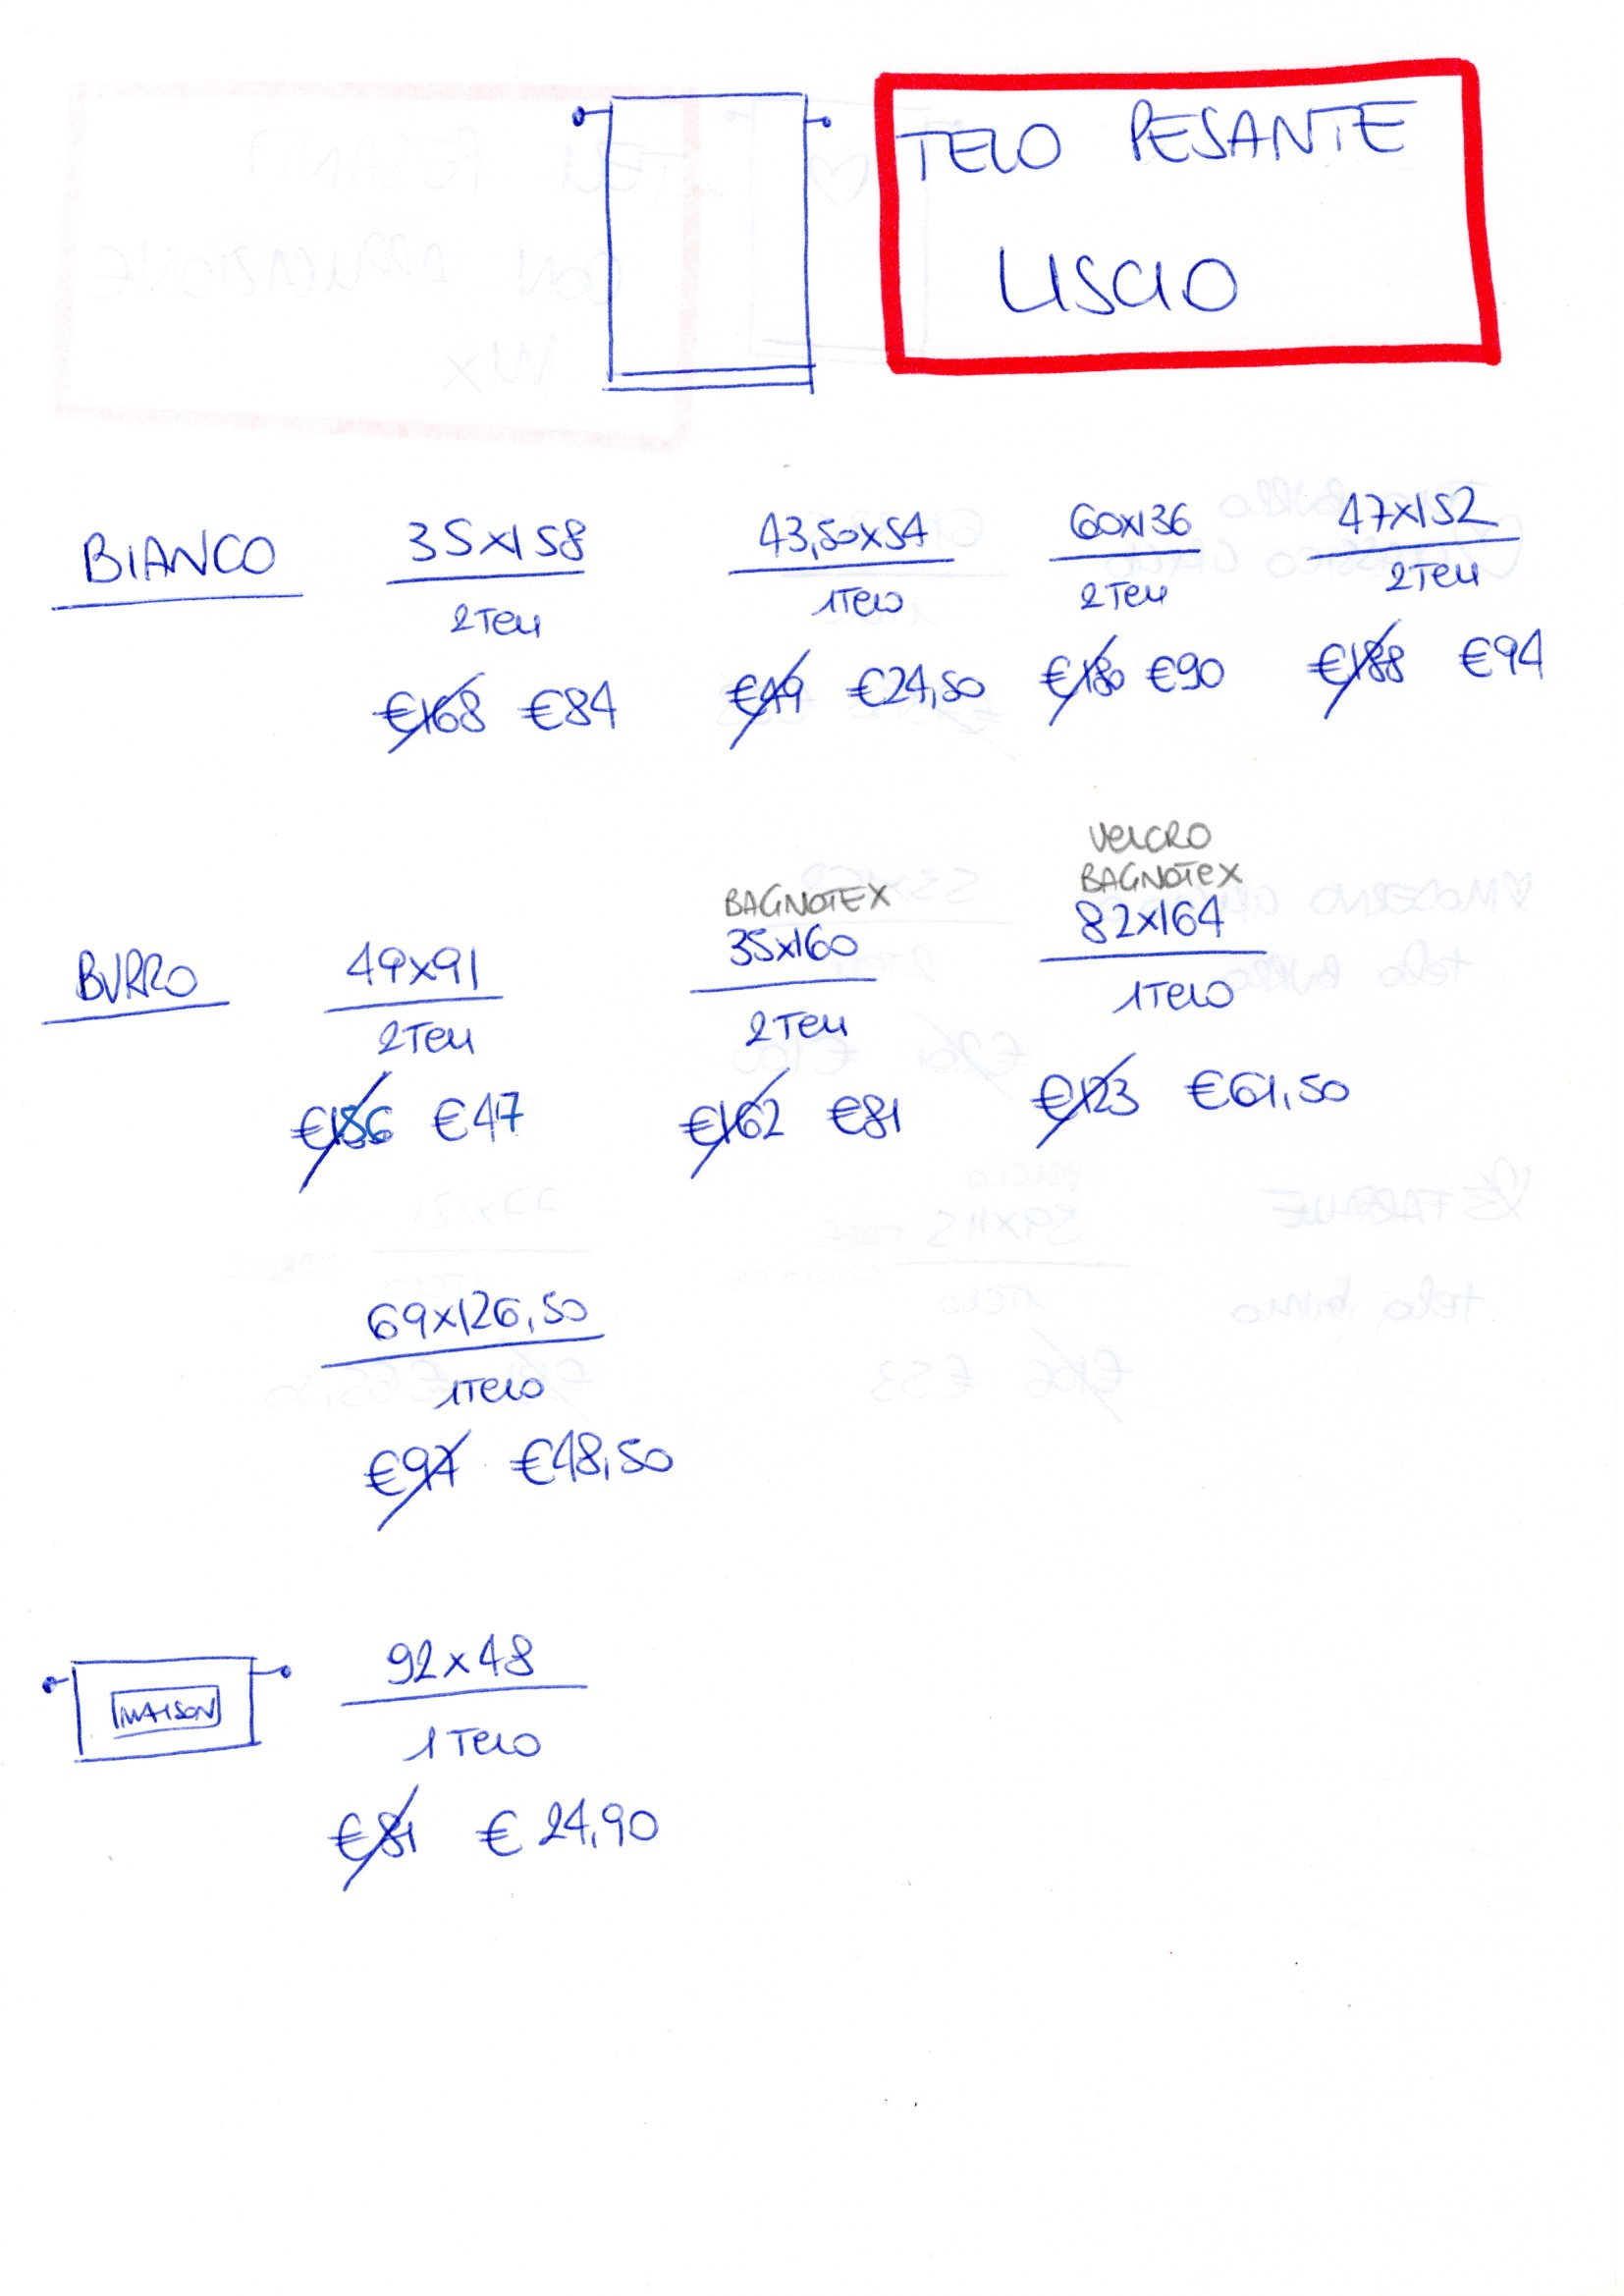 TELO PESANTE
LISCIO
BIANCO
35x158
2 Teli
€168 €84
43,50x54
1 Telo
€49 €24,50
60x136
2 Teli
€180 €90
47x152
2 Teli
€188 €94
BURRO
49x91
2 Teli
€47
BAGNOTEX
35x160
2 Teli
€162 €81
VELCRO
BAGNOTEX
82x164
1 Telo
€123 €61,50
69x126,50
1 Telo
€97 €48,50
MAISON
92x48
1 Telo
€81 €24,90